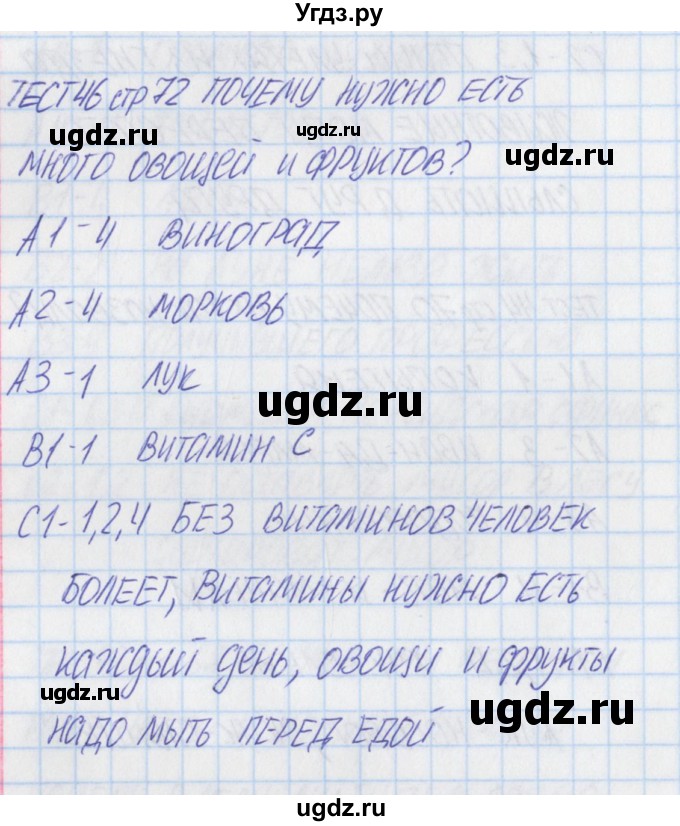 Угдз.ру
ТЕСТ 46 стр 72 ПОЧЕМУ НУЖНО ЕСТЬ
ugdz.ru ugdz.ru ugdz.ru
МНОГО ОВОЩЕЙ И ФРУКТОВ?
А1-4 ВИНОГРАД
А2-4 МОРКОВЬ
А3-1 ЛУК
ugdz.ru
В1-1 ВИТАМИН С
С1-1,2,4 БЕЗ ВИТАМИНОВ ЧЕЛОВЕК
БОЛЕЕТ, ВИТАМИНЫ НУЖНО ЕСТЬ
КАЖДЫЙ ДЕНЬ, ОВОЩИ И ФРУКТЫ
ugdz.ru ugdz.ru
НАДО МЫТЬ ПЕРЕД ЕДОЙ
ugdz.ru